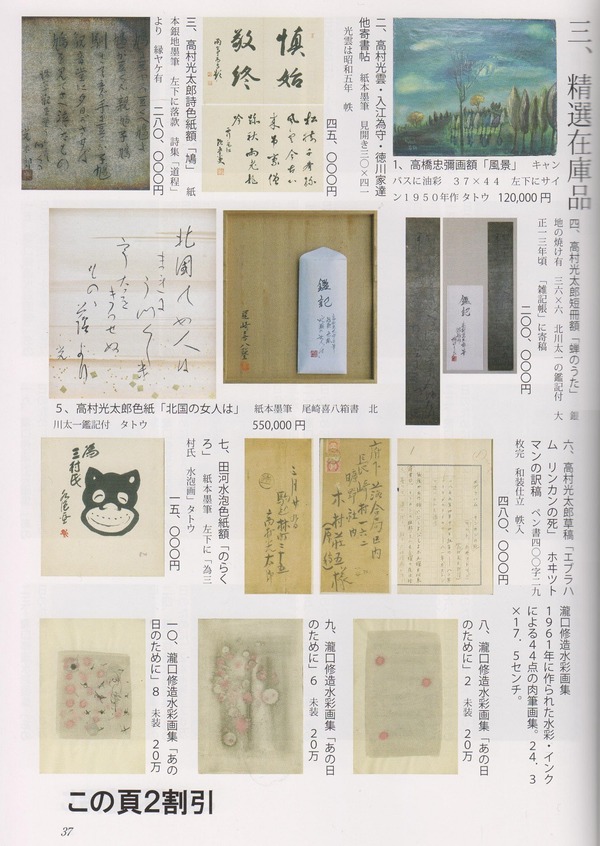 三、精選在庫品
1、高橋忠彌画額「風景」 キャン
バスに油彩 37×44 左下にサイ
ン1950年作 タトウ 120,000円
二、高村光雲・入江為守・徳川家達
他寄書帖 紙本墨筆 見開き三〇×四一
光雲は昭和五年 帙
四五、〇〇〇円
慎始
敬終
三、高村光太郎詩色紙額「鳩」 紙
本銀地墨筆 左下に落款 詩集「道程」
より 縁ヤケ有 二八〇、〇〇〇円
四、高村光太郎短冊額「蝉のうた」 銀
地の焼け有 三六×六 北川太一の鑑記付 大
正一三年頃 「雑記帳」に寄稿
二〇〇、〇〇〇円
鑑記
鑑記
尾崎喜八
北國の女人は
5、高村光太郎色紙「北国の女人は」 紙本墨筆 尾崎喜八箱書 北
川太一鑑記付 タトウ 550,000円
六、高村光太郎草稿「エブラハ
ム リンカンの死」 ホヰツト
マンの訳稿 ペン書四〇〇字二九
枚完 和装仕立 帙入
四八〇、〇〇〇円
木村荘五様
七、田河水泡色紙額「のらく
ろ」 紙本墨筆 左下に「為三
村氏 水泡画」タトウ
一五、〇〇〇円
為
三村氏
瀧口修造水彩画集
1961年に作られた水彩・インク
による44点の肉筆画集。24.3
×17.5センチ。
八、瀧口修造水彩画集「あの日
のために」2 未装 20万
九、瀧口修造水彩画集「あの日
のために」6 未装 20万
一〇、瀧口修造水彩画集「あの
日のために」8 未装 20万
この頁2割引
37